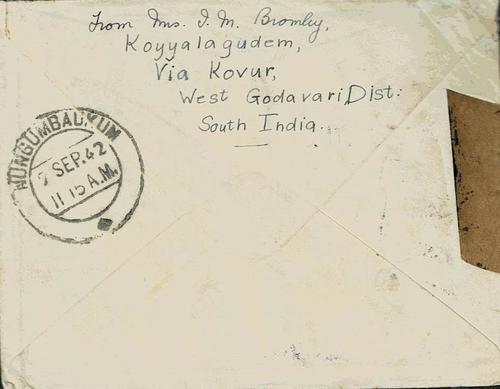 From Mrs. I. M. Bromley,
Koyyalagudem,
Via Kovur,
West Godavari, Dist:
South India.
NUNGUMBAUKUM
7 SEP. 42
11-15 A.M.